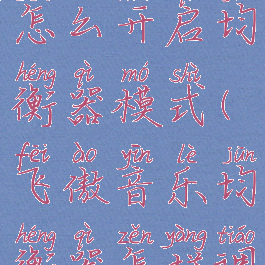 怎么开启均
héng qì mó shì
衡器模式(
fēi ào yīn lè jūn
飞傲音乐均
héng qì zěn yàng tiáo
衡器怎样调